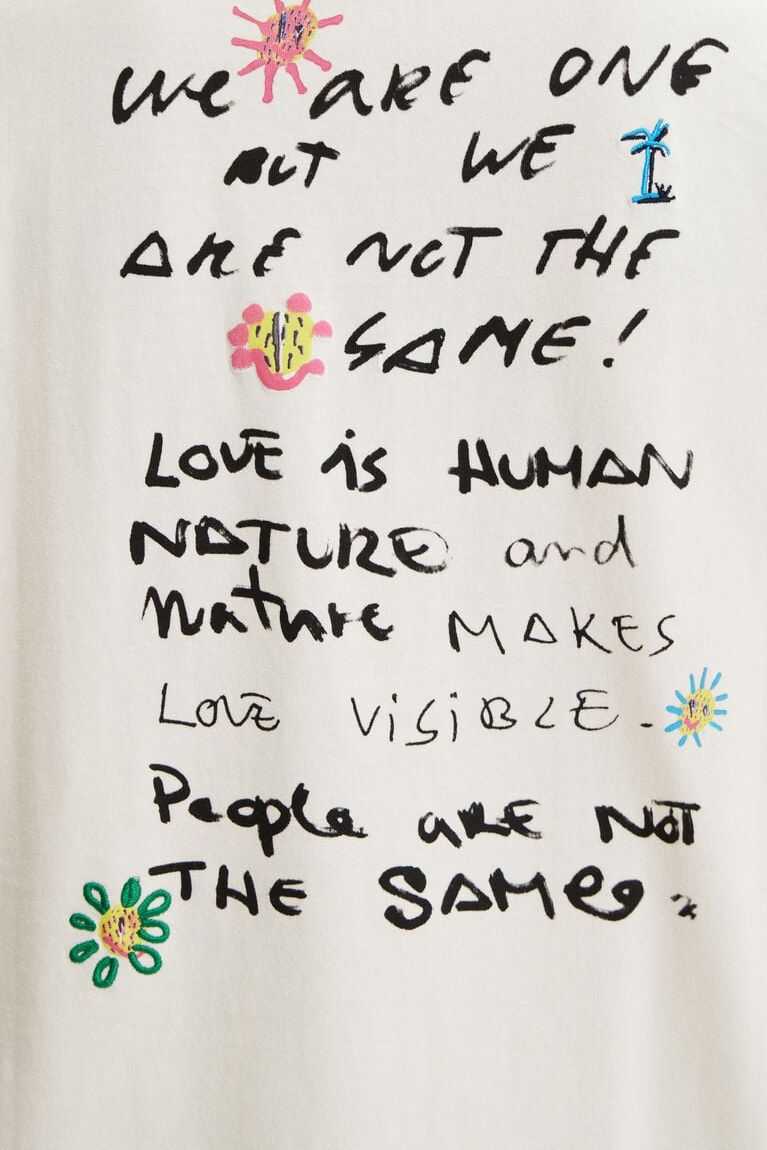 We ARE ONE
BUT WE
ARE NOT THE
SAME!
LOVE is HUMAN
NATURE and
Nature MAKES
LOVE ViSiBLE.
People ARE NOT
THE SAMe.